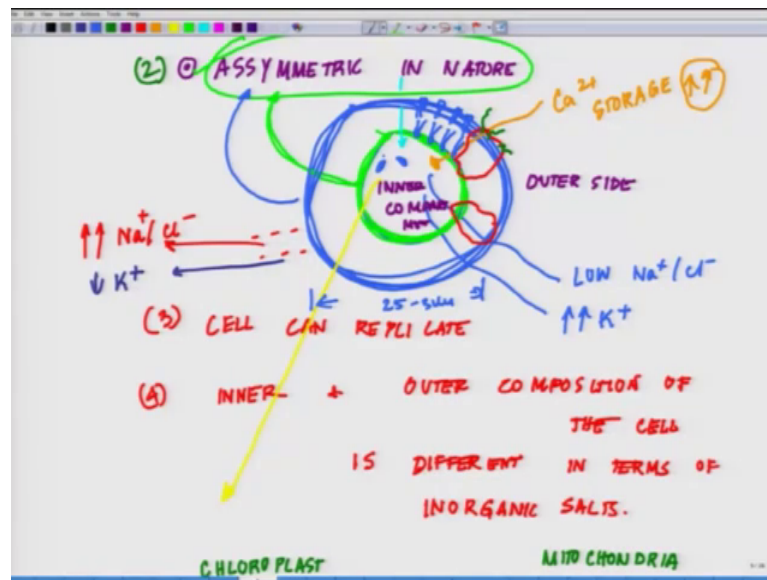 (2) ASSYMMETRIC IN NATURE
Ca2+ STORAGE ↑↑
INNER
COMPART
MNT
OUTER SIDE
↑↑ Na+/Cl-
↓ K+
LOW Na+/Cl-
↑↑ K+
(3) CELL CAN REPLICATE
(4) INNER + OUTER COMPOSITION OF
THE CELL
IS DIFFERENT IN TERMS OF
INORGANIC SALTS.
CHLOROPLAST
MITOCHONDRIA